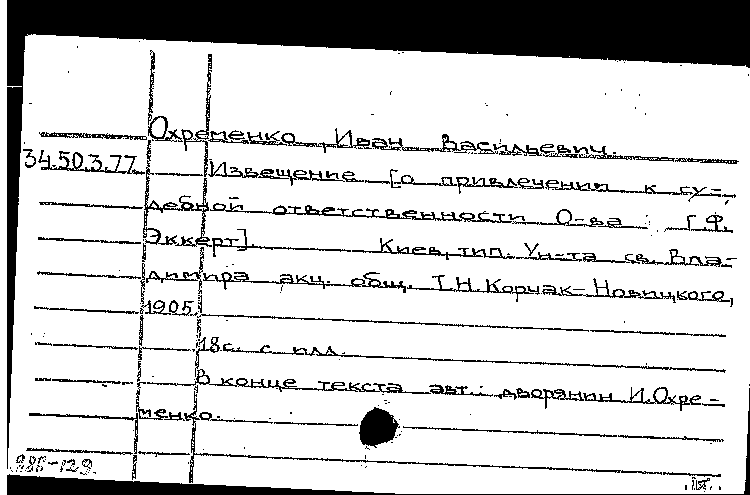 Охременко, Иван Васильевич.
34.50.3.77. Извещение [о привлечении к су-
дебной ответственности О-ва: Г.Ф.
Эккерт]. Киев, тип. Ун-та св. Вла-
димира акц. общ. Т.Н. Корчак-Новицкого,
1905.
18с. с илл.
В конце текста авт.: дворянин И.Охре-
менко.